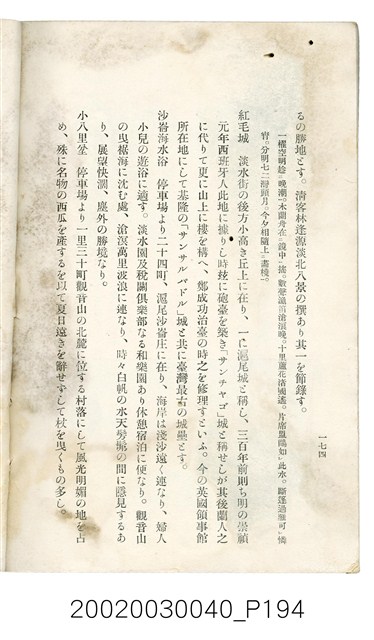 るの勝地とす。清客林逢源淡北八景の撰あり其一を節錄す。
一權空明趁晚潮。木蘭舟在鏡中搖。數聲漁笛滄浪晚。十里蘆花浩國遙。片席風陽如此水。斷蓬過雁可憐
宵。分明七二灣頭月。今夕相隨上畵橈。
紅毛城 淡水街の後方小高き丘上に在り、一に滬尾城と稱し、三百年前則ち明の崇禎
元年西班牙人此地に據りし時玆に砲臺を築き「サンチヤゴ」城と稱せしが其後蘭人之
に代りて更に山上に樓を構へ、鄭成功治臺の時之を修理すといふ。今の英國領事館
所在地にして基隆の「サンサルバドル」城と共に臺灣最古の城壘とす。
沙崙海水浴 停車場より二十四町、滬尾沙崙庄に在り、海岸は淺沙遠く連なり、婦人
小兒の遊浴に適す。淡水園及稅關俱樂部なる和樂園あり休憩宿泊に便なり。觀音山
の曳裾海に沈む處、滄溟萬里波浪に連なり、時々白帆の水天髣髴の間に隱見するあ
り、展望快濶、塵外の勝境なり。
小八里坌 停車場より一里三十町觀音山の北麓に位する村落にして風光明媚の地を占
め、殊に名物の西瓜を產するを以て夏日遠きを辭せずして杖を曳くもの多し。
一七四
20020030040_P194